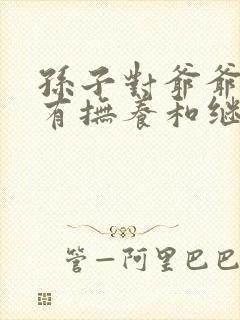 孫子對爺爺
有撫養和继
管—阿里巴巴